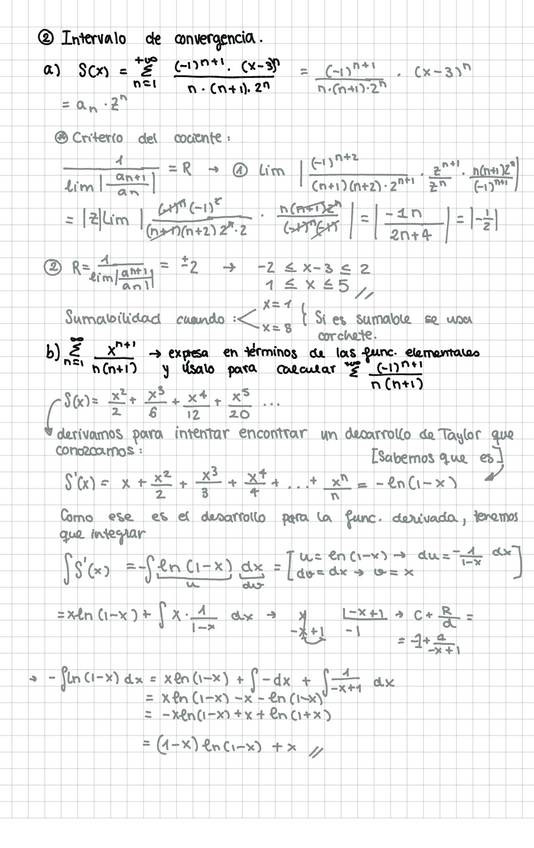 ② Intervalo de convergencia.
a) S(x) = +∞ Σ n=1 (-1)^n+1 · (x-3)^n / n · (n+1) · 2^n = (-1)^n+1 / n·(n+1)·2^n · (x-3)^n
= an · z^n
Criterio del cociente:
1 / lim |an+1 / an| = R → ① lim | (-1)^n+2 / (n+1)(n+2) · 2^n+1 · z^n+1 / z^n · n(n+1)2^n / (-1)^n+1 |
= |z| lim | (-1)^n (-1)^2 / (n+1)(n+2) 2^n · 2 · n(n+1)2^n / (-1)^n (-1) | = | -1n / 2n+4 | = |-1/2|
② R = 1 / lim |an+1 / an| = ±2 → -2 ≤ x-3 ≤ 2
1 ≤ x ≤ 5 //
Sumabilidad cuando: x=1 x=8 { Si es sumable se usa
corchete.
b) ∞ Σ n=1 x^n+1 / n(n+1) → expesa en términos de las func. elementales
y úsalo para calcular ∞ Σ (-1)^n+1 / n(n+1)
S(x) = x^2/2 + x^3/6 + x^4/12 + x^5/20 ...
derivamos para intentar encontrar un desarrollo de Taylor que
conozcamos: [Sabemos que es]
S'(x) = x + x^2/2 + x^3/3 + x^4/4 + ... + x^n/n = -ln(1-x)
Como ese es el desarrollo para la func. derivada, tenemos
que integrar
∫S'(x) = -∫ ln(1-x) dx = [ u = ln(1-x) → du = -1/1-x dx
u dv dv = dx → v = x ]
= x ln(1-x) + ∫ x · 1/1-x dx → x |-x+1 → C + R/d =
-x+1 -1 = -1 + a/-x+1
→ -∫ln(1-x) dx = x ln(1-x) + ∫-dx + ∫ 1/-x+1 dx
= x ln(1-x) - x - ln(1-x)
= -x ln(1-x) + x + ln(1+x)
= (1-x) ln(1-x) + x //